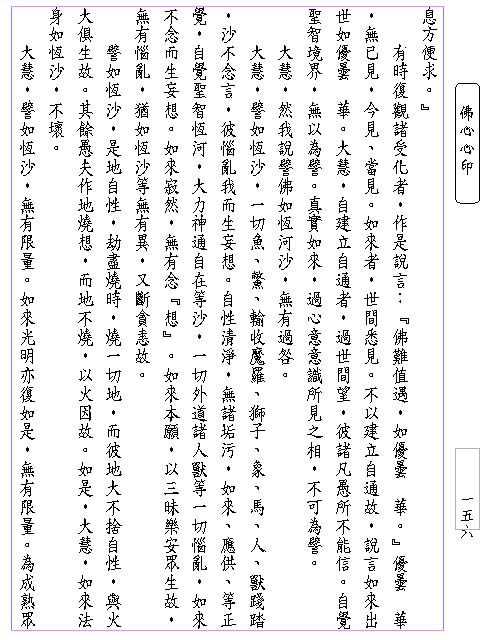 佛心心印
一五六
息方便求。』
有時復觀諸受化者，作是說言：『佛難值遇，如優曇　華。』優曇　華
，無已見，今見、當見。如來者，世間悉見。不以建立自通故，說言如來出
世如優曇　華。大慧，自建立自通者，過世間望，彼諸凡愚所不能信。自覺
聖智境界，無以為譬。真實如來，過心意意識所見之相，不可為譬。
大慧，然我說譬佛如恆河沙，無有過咎。
大慧，譬如恆沙，一切魚、鱉、輸收魔羅、獅子、象、馬、人、獸踐踏
，沙不念言，彼惱亂我而生妄想。自性清淨，無諸垢污，如來、應供、等正
覺，自覺聖智恆河，大力神通自在等沙，一切外道諸人獸等一切惱亂，如來
不念而生妄想。如來寂然，無有念『想』。如來本願，以三昧樂安眾生故，
無有惱亂，猶如恆沙等無有異，又斷貪恚故。
譬如恆沙，是地自性，劫盡燒時，燒一切地，而彼地大不捨自性，與火
大俱生故。其餘愚夫作地燒想，而地不燒，以火因故。如是，大慧，如來法
身如恆沙，不壞。
大慧，譬如恆沙，無有限量。如來光明亦復如是，無有限量。為成熟眾